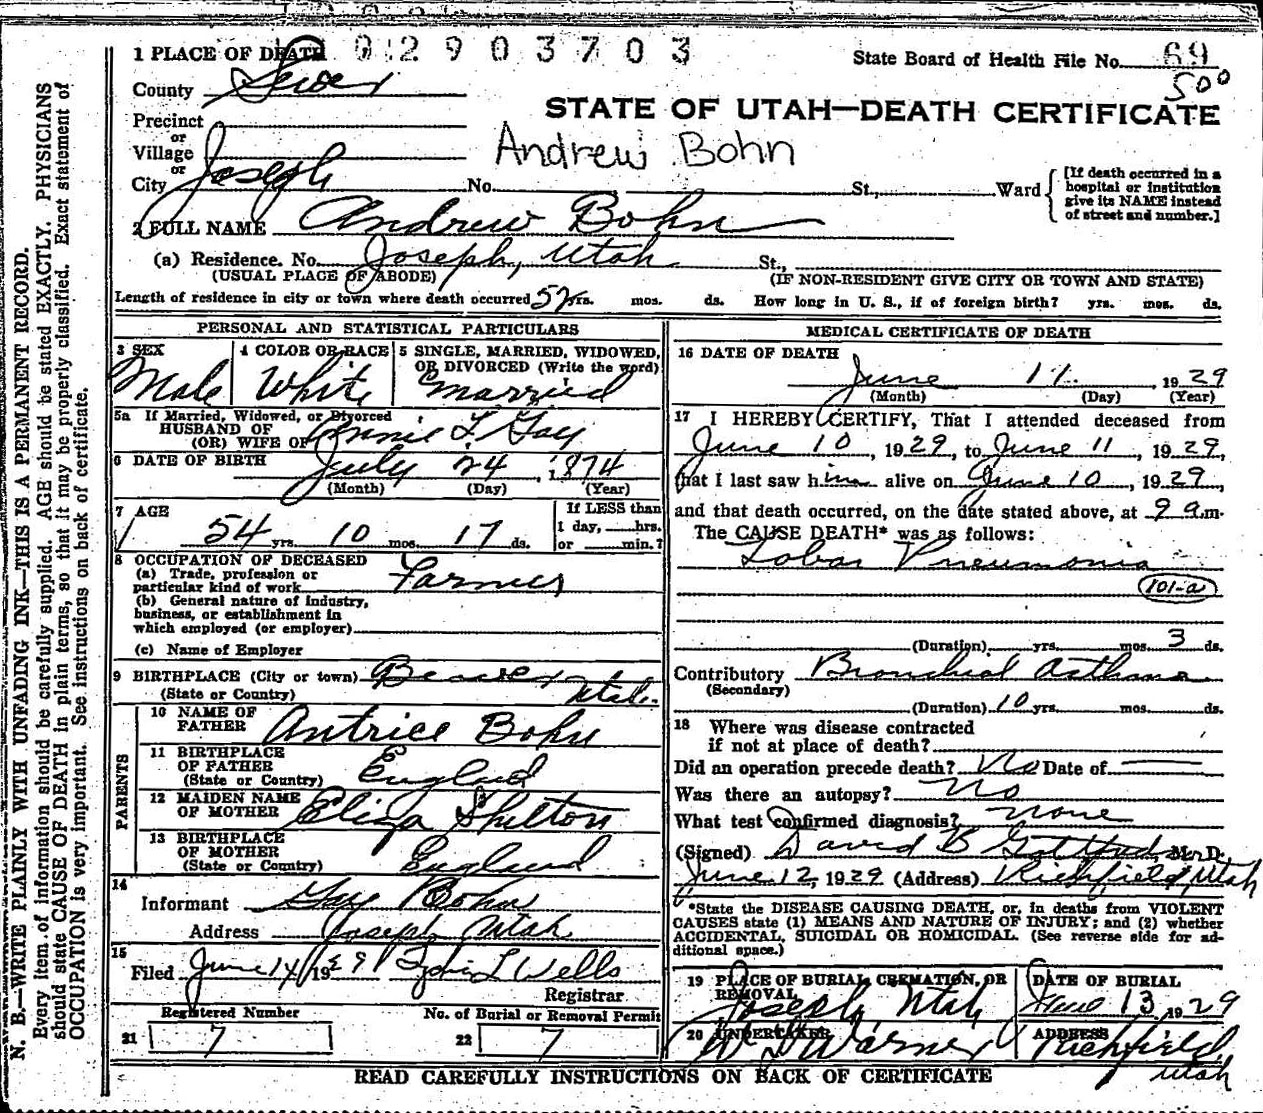 1 PLACE OF DEATH 0 2 9 0 3 7 0 3
State Board of Health File No. 69
500
County Sevier
STATE OF UTAH—DEATH CERTIFICATE
Precinct
or
Village
or
Andrew Bohn
City Joseph No. St., Ward
[If death occurred in a
hospital or institution
give its NAME instead
of street and number.]
2 FULL NAME Andrew Bohn
(a) Residence. No. Joseph, Utah St.,
(USUAL PLACE OF ABODE) (IF NON-RESIDENT GIVE CITY OR TOWN AND STATE)
Length of residence in city or town where death occurred 52 yrs. mos. ds. How long in U. S., if of foreign birth? yrs. mos. ds.
PERSONAL AND STATISTICAL PARTICULARS
3 SEX
Male
4 COLOR OR RACE
White
5 SINGLE, MARRIED, WIDOWED,
OR DIVORCED (Write the word)
married
5a If Married, Widowed, or Divorced
HUSBAND OF
(OR) WIFE OF Annie L. Gay
6 DATE OF BIRTH July 24 1874
(Month) (Day) (Year)
7 AGE
54 yrs. 10 mos. 17 ds.
If LESS than
1 day, hrs.
or min.?
8 OCCUPATION OF DECEASED
(a) Trade, profession or
particular kind of work Farmer
(b) General nature of industry,
business, or establishment in
which employed (or employer)
(c) Name of Employer
9 BIRTHPLACE (City or town) Beaver
(State or Country) Utah.
PARENTS
10 NAME OF
FATHER Antrice Bohn
11 BIRTHPLACE
OF FATHER
(State or Country) England
12 MAIDEN NAME
OF MOTHER Eliza Shelton
13 BIRTHPLACE
OF MOTHER
(State or Country) England
14
Informant Gay Bohn
Address Joseph Utah
15
Filed June 14, 1929 L Wells
Registrar
Registered Number
21 7
No. of Burial or Removal Permit
22 7
MEDICAL CERTIFICATE OF DEATH
16 DATE OF DEATH
June 11. , 1929
(Month) (Day) (Year)
17 I HEREBY CERTIFY, That I attended deceased from
June 10, 1929, to June 11, 1929,
that I last saw him alive on June 10, 1929,
and that death occurred, on the date stated above, at 9 a.m.
The CAUSE DEATH* was as follows:
Lobar Pneumonia
101-a
(Duration) yrs. mos. 3 ds.
Contributory Bronchial Asthma
(Secondary)
(Duration) 10 yrs. mos. ds.
18 Where was disease contracted
if not at place of death?
Did an operation precede death? No Date of —
Was there an autopsy? No
What test confirmed diagnosis? none
(Signed) David B Gottfredson, M. D.
June 12, 1929 (Address) Richfield, Utah
*State the DISEASE CAUSING DEATH, or, in deaths from VIOLENT
CAUSES state (1) MEANS AND NATURE OF INJURY; and (2) whether
ACCIDENTAL, SUICIDAL OR HOMICIDAL. (See reverse side for ad-
ditional space.)
19 PLACE OF BURIAL, CREMATION, OR
REMOVAL
Joseph, Utah
DATE OF BURIAL
June 13, 1929
20 UNDERTAKER
Warner
ADDRESS
Richfield,
Utah
READ CAREFULLY INSTRUCTIONS ON BACK OF CERTIFICATE
N. B.—WRITE PLAINLY WITH UNFADING INK—THIS IS A PERMANENT RECORD.
Every item of information should be carefully supplied. AGE should be stated EXACTLY. PHYSICIANS
should state CAUSE OF DEATH in plain terms, so that it may be properly classified. Exact statement of
OCCUPATION is very important. See instructions on back of certificate.